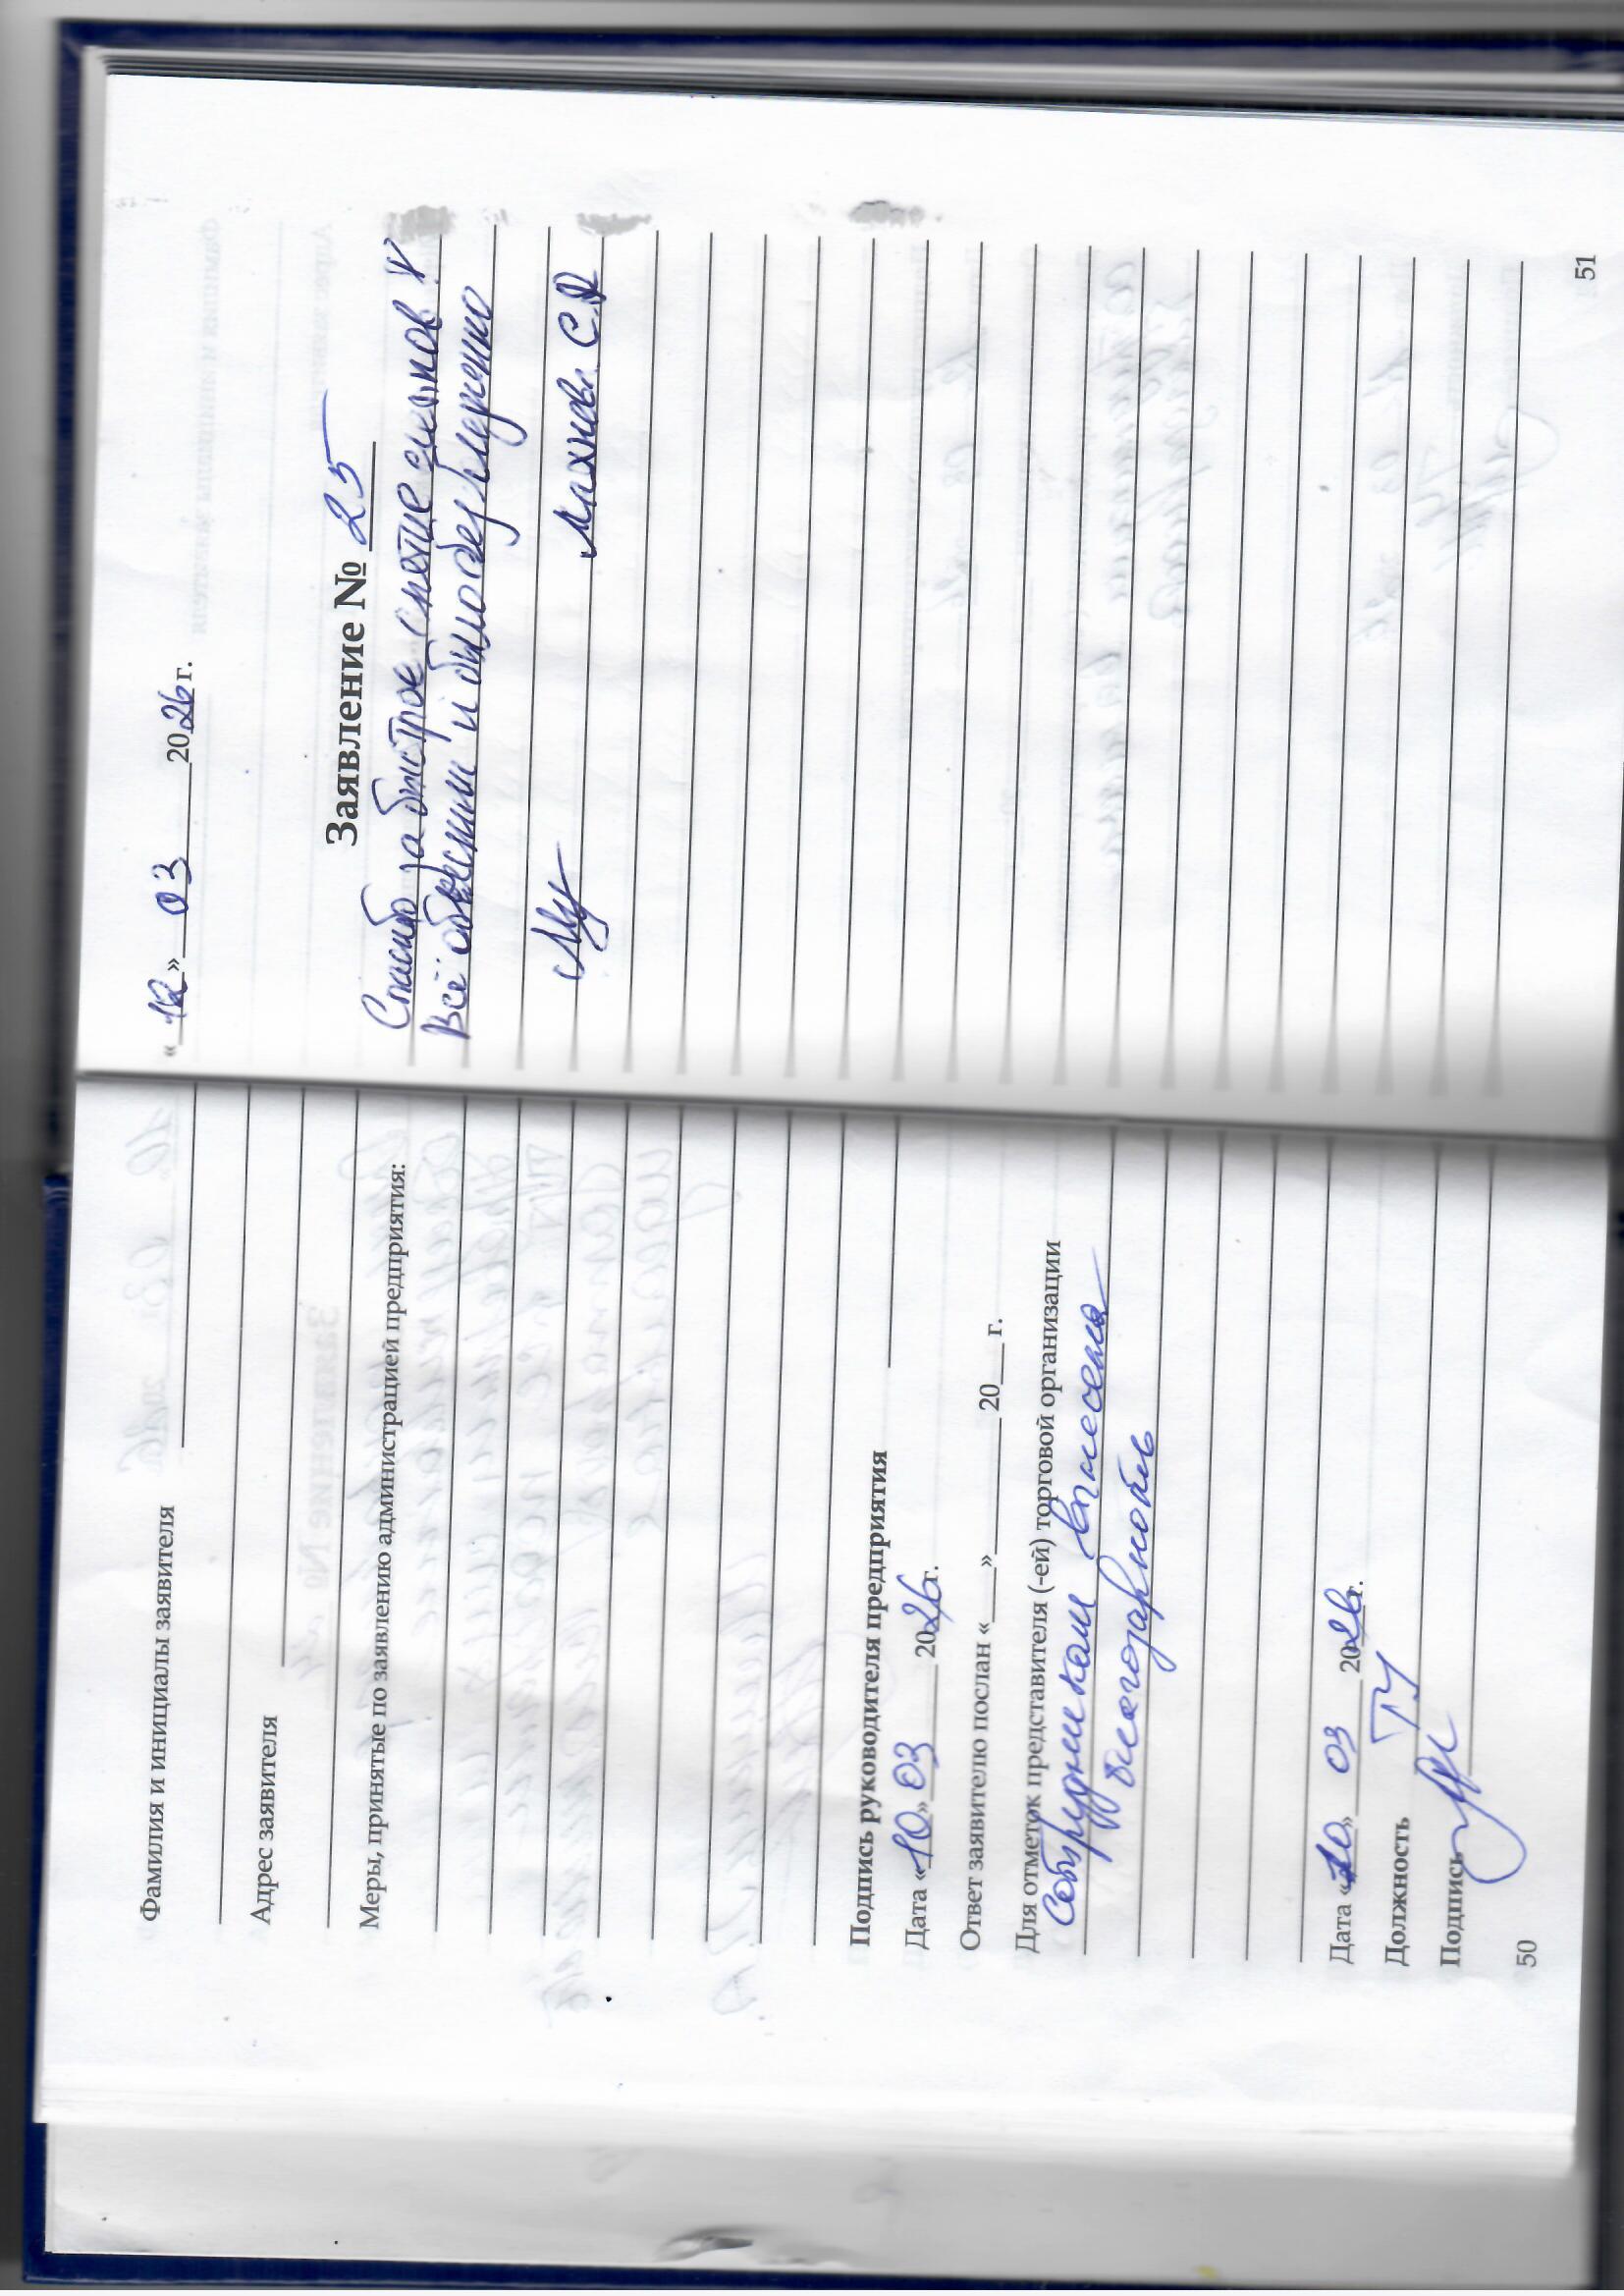 Фамилия и инициалы заявителя
Адрес заявителя
Меры, принятые по заявлению администрацией предприятия:
Подпись руководителя предприятия
Дата «10» 03 2026г.
Ответ заявителю послан «___»________20___г.
Для отметок представителя (-ей) торговой организации
Сотрудникам вынесена
благодарность
Дата «10» 03 2026г.
Должность ТУ
Подпись
50
«12» 03 2026 г.
Заявление № 25
Спасибо за быстрое снятие
Всё объяснили и
Махнова С.
51